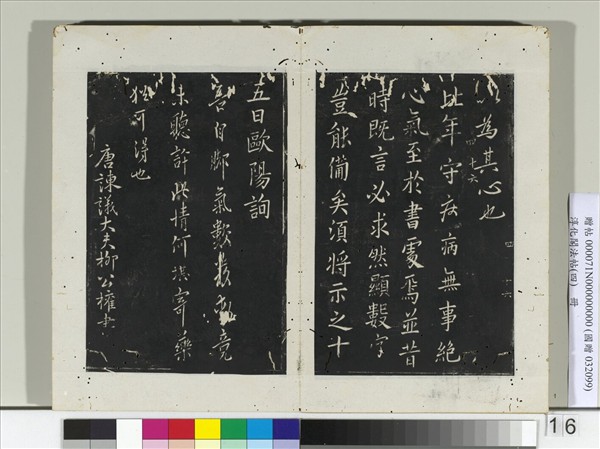 為其心也
四 七六
比年守疾病無事絕
心氣至於書處焉並昔
時既言必求然顯數字
豈能備矣須將示之十
四 十六
五日歐陽詢
善自腳氣數發動竟
未聽許此情何堪寄藥
猶可得也
唐諫議大夫柳公權書
贈帖 000071N000000000 (國贈 032099)
淳化閣法帖(四) 冊
16